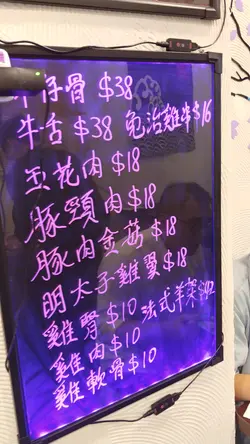 牛仔骨 $38
牛舌 $38
五花肉 $18
豚頸肉 $18
豚肉金菇 $18
明太子雞翼 $18
雞腎 $10 法式羊架
雞肉 $10
雞軟骨 $10